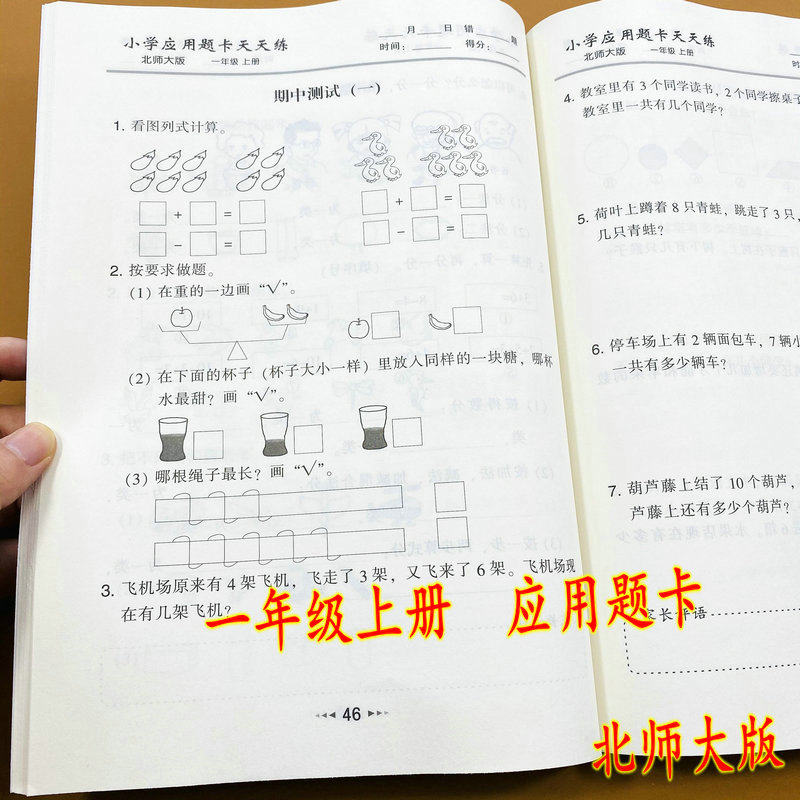 小学应用题卡天天练
北师大版 一年级 上册
月 日 错 题
时间： 得分：
期中测试（一）
1. 看图列式计算。
+ =
− =
+ =
− =
2. 按要求做题。
（1）在重的一边画“√”。
（2）在下面的杯子（杯子大小一样）里放入同样的一块糖，哪杯
水最甜？画“√”。
（3）哪根绳子最长？画“√”。
3. 飞机场原来有 4 架飞机，飞走了 3 架，又飞来了 6 架。飞机场现
在有几架飞机？
46
小学应用题卡天天练
北师大版 一年级 上册
4. 教室里有 3 个同学读书，2 个同学擦桌子
教室里一共有几个同学？
5. 荷叶上蹲着 8 只青蛙，跳走了 3 只，
几只青蛙？
6. 停车场上有 2 辆面包车，7 辆小
一共有多少辆车？
7. 葫芦藤上结了 10 个葫芦，
芦藤上还有多少个葫芦？
家长评语
一年级上册 应用题卡
北师大版